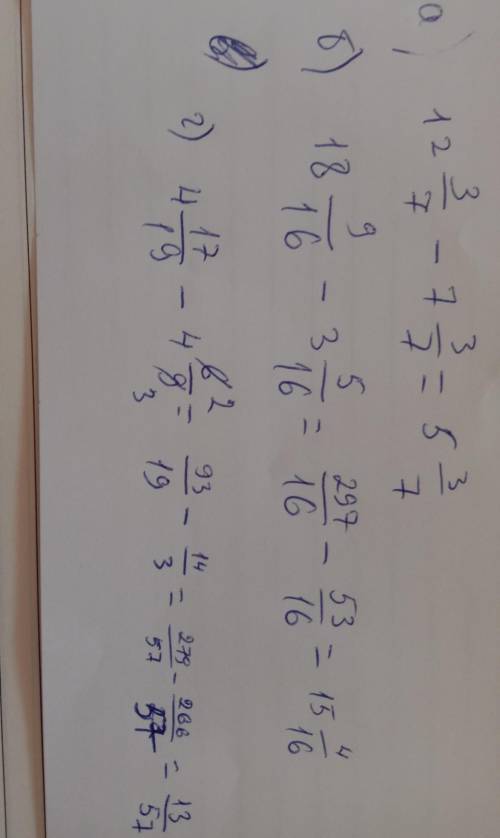 а) 12 3/7 − 7 3/7 = 5 3/7
б) 18 9/16 − 3 5/16 = 297/16 − 53/16 = 15 4/16
г) 4 17/19 − 4 6/9 2/3 = 93/19 − 14/3 = 279/57 − 266/57 = 13/57